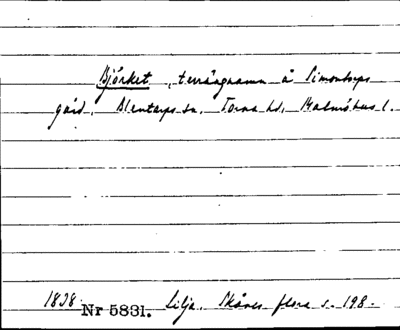 Björket, terrängnamn å Simontorps
gård, Blentarps sn, Torna hd, Malmöhus l.
1838. Nr 5831. Lilja, Skånes flora s. 198.